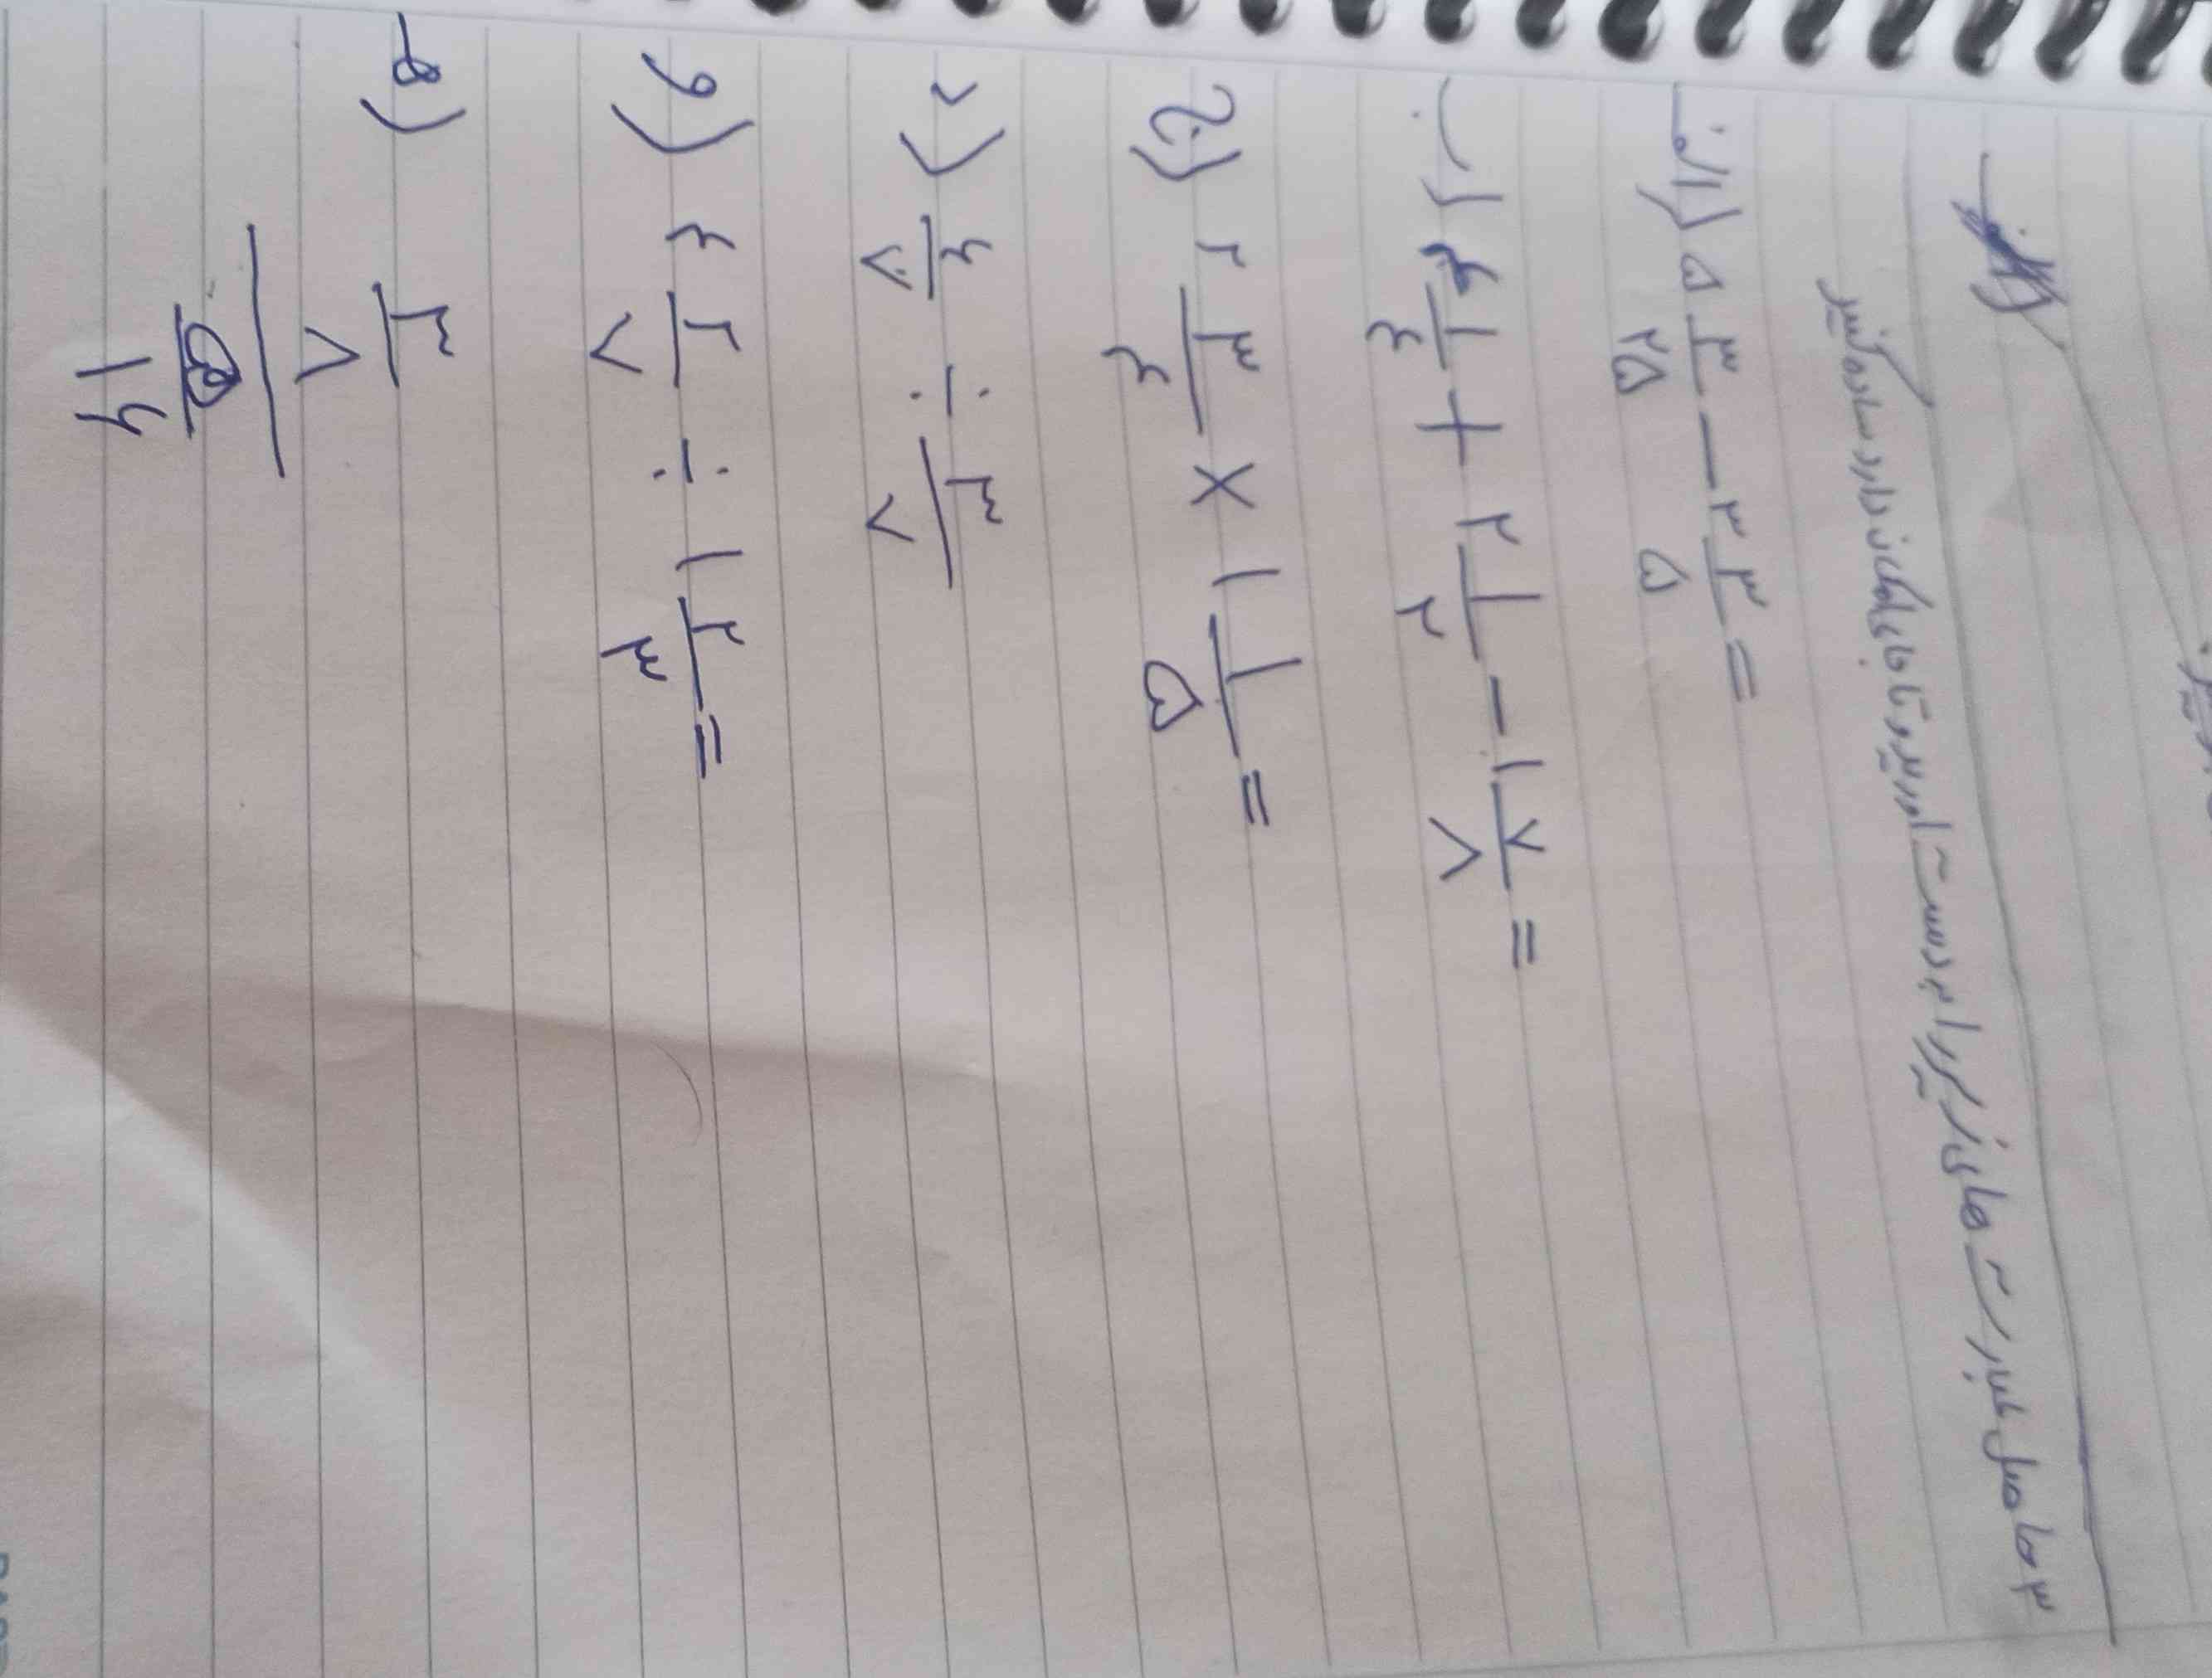 ۳ حاصل عبارت های زیر را به دست آورید و تا جای امکان دارد ساده کنید
الف) ۵ ۳/۲۵ - ۲ ۳/۵ =
ب) ۴ ۱/۴ + ۲ ۱/۲ - ۱ ۷/۸ =
ج) ۲ ۳/۴ × ۱ ۱/۵ =
د) ۴/۷ ÷ ۳/۷
و) ۴ ۲/۷ ÷ ۱ ۲/۳ =
ه) ۳/۸
۵/۱۶